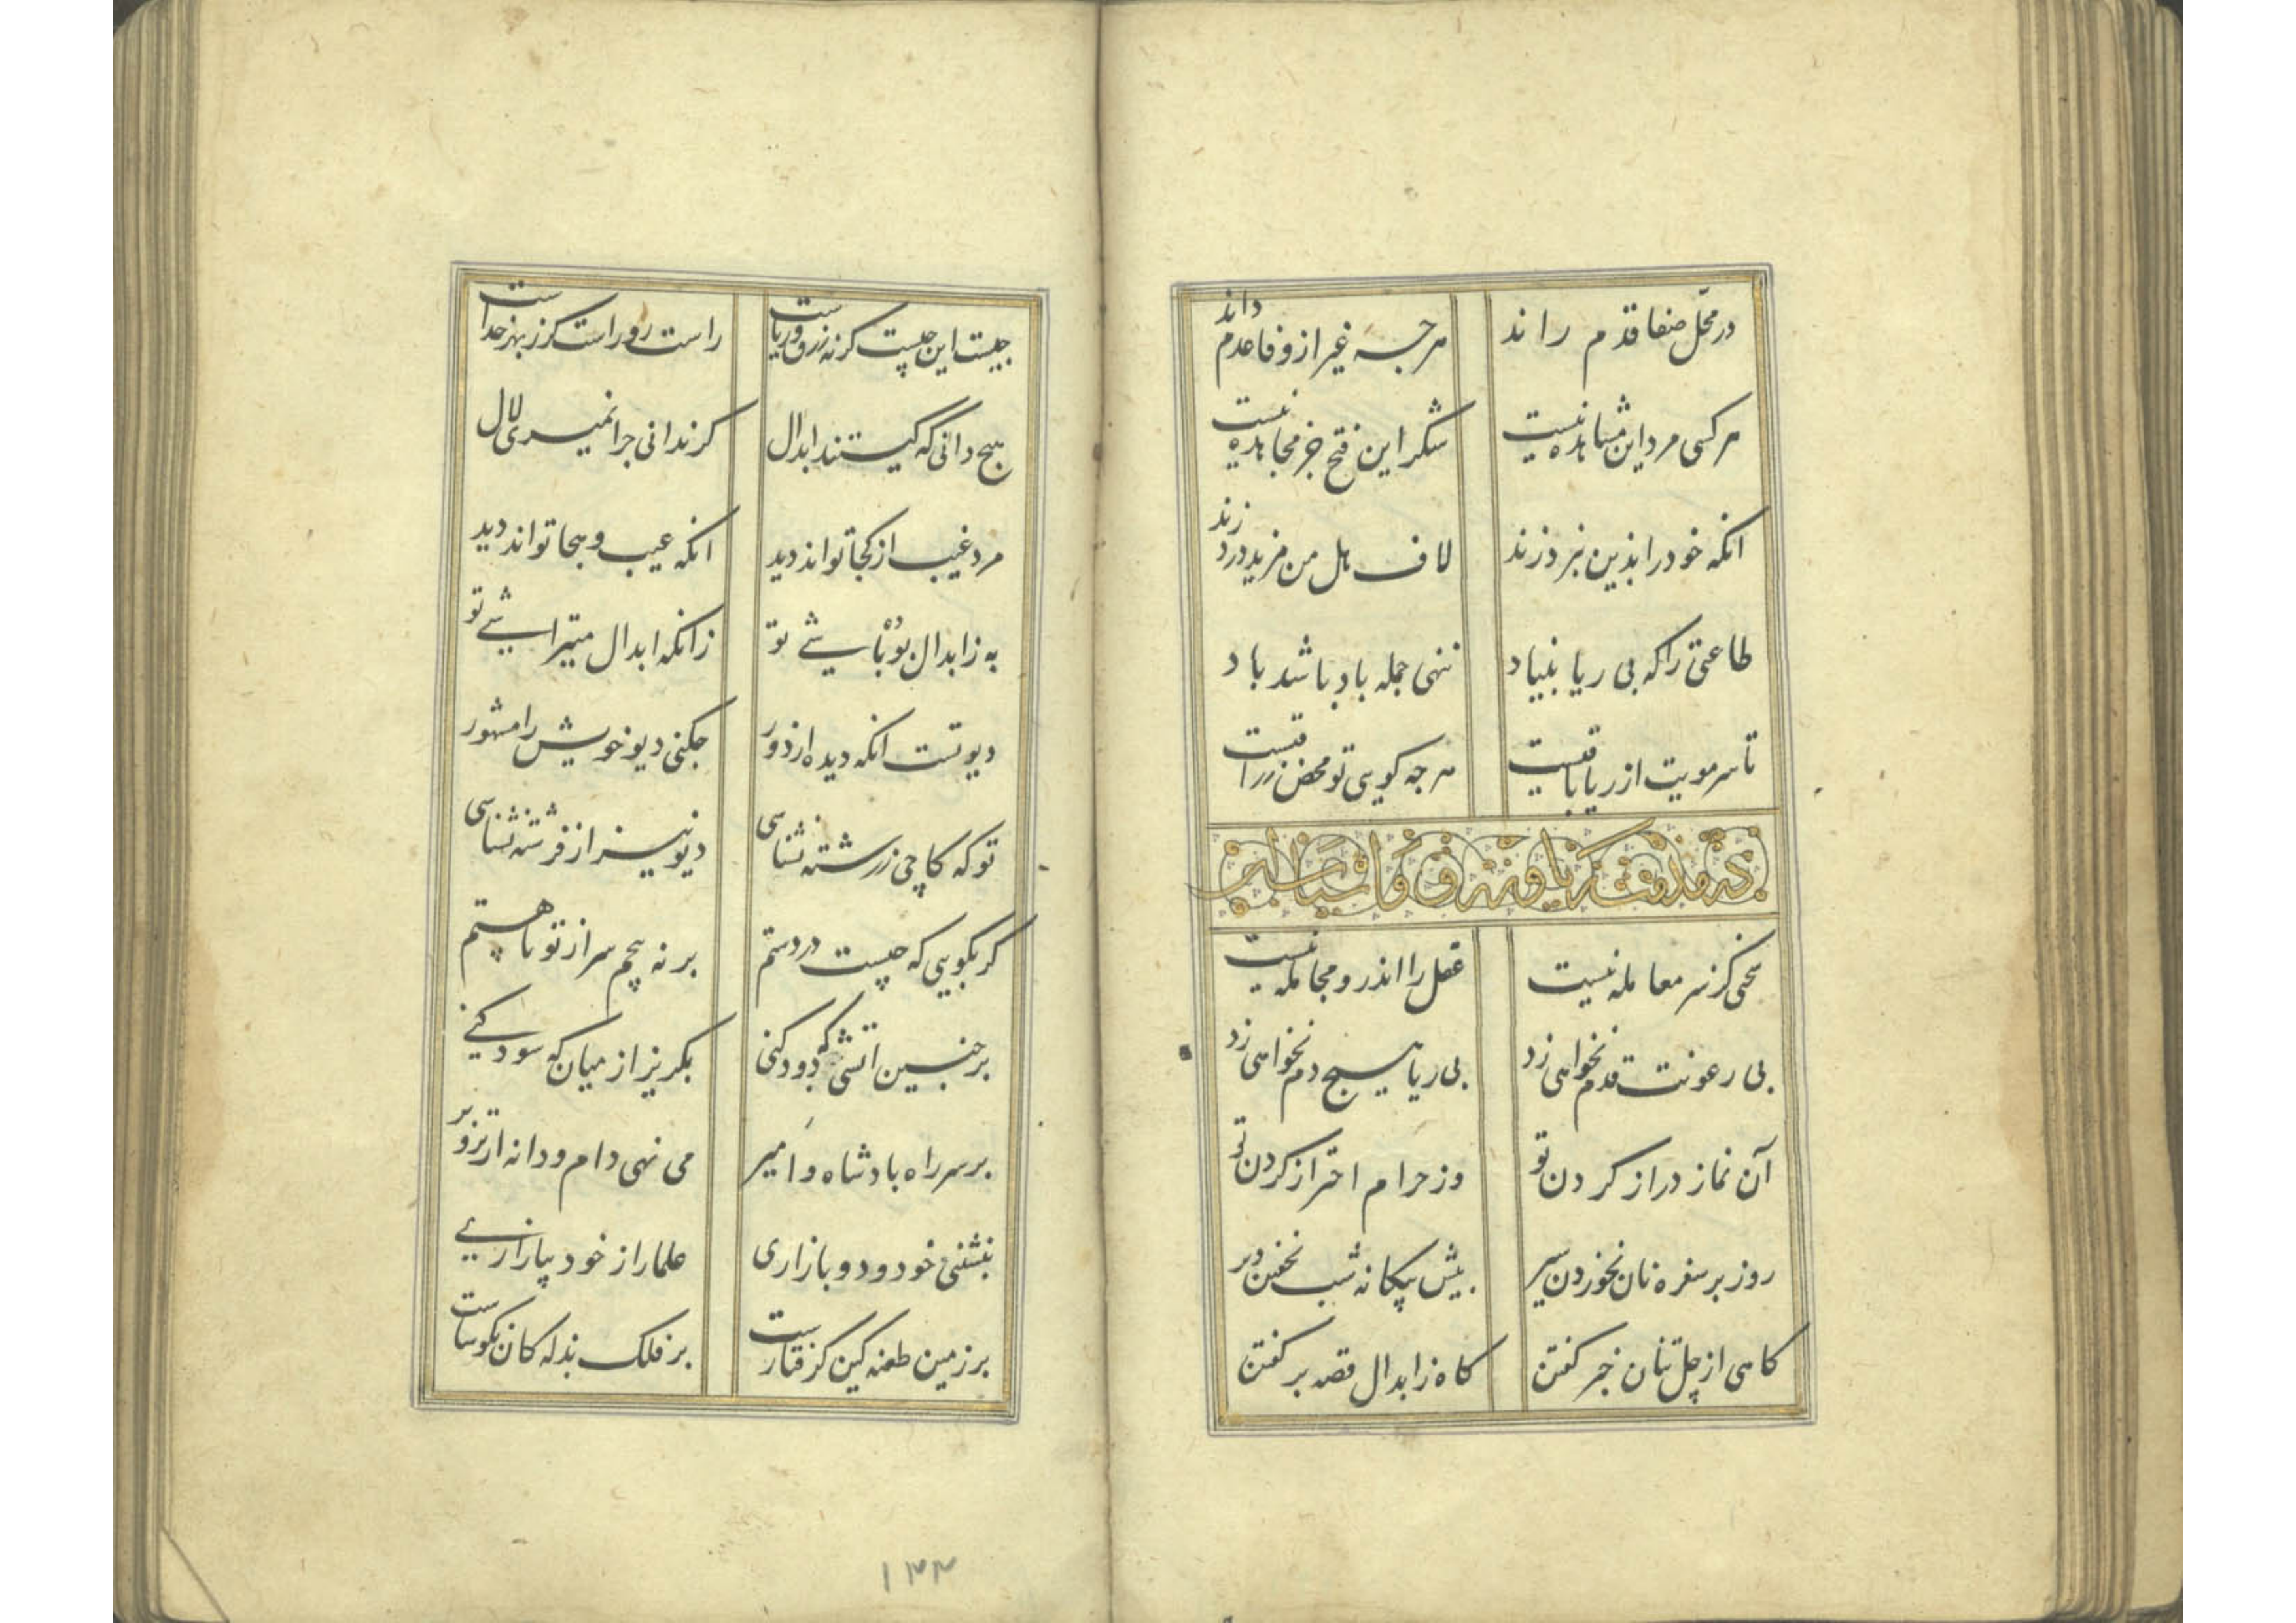 در محل صفا قدم راند هرچه غیر از وفا عدم داند
هر کسی مرد این مشاهده نیست شکر این فتح جز مجاهده نیست
انکه خود را بذین نبرد زند لاف هل من مزید درد زند
طاعتی را که بی ریا بنیاد ننهی جمله باد باشد باد
تا سر مویت از ریا باقیست هرچه کویی تو محض زراقیست
در مذمت
سخنی کز سر معامله نیست عقل را اندرو مجامله نیست
بی رعونت قدم نخواهی زد بی ریا هیچ دم نخواهی زد
آن نماز دراز کردن تو وز حرام احتراز کردن تو
روز بر سفره نان نخوردن سیر پیش بیکانه شب نخفتن دیر
کاهی از چل تنان خبر کفتن کاه ز ابدال قصه بر کفتن
چیست این چیست کرنه زرق و ریاست راست رو راست کز بهر خداست
هیچ دانی که کیستند ابدال کر ندانی چرا نمیری لال
مرد غیب از کجا تواند دید انکه عیب و هجا تواند دید
به ز ابدال بو باشی تو زانکه ابدال میتراشی تو
دیو تست انکه دیده از دور چکنی دیو خویش را مشهور
تو که کاچی ز رشته نشناسی دیو نیز از فرشته نشناسی
کر بکویی که چیست در دستم بر نه پیچم سر از تو تا هستم
بر چنین اتشی که دود کنی بکریز از میان که سود کنی
بر سر راه بادشاه و امیر می نهی دام و دانه از تزویر
بنشنی خود و دو بازاری علما را ز خود بیازاری
بر زمین طعنه کین کرفتارست بر فلک بذله کان نکوسارست
۱۳۳